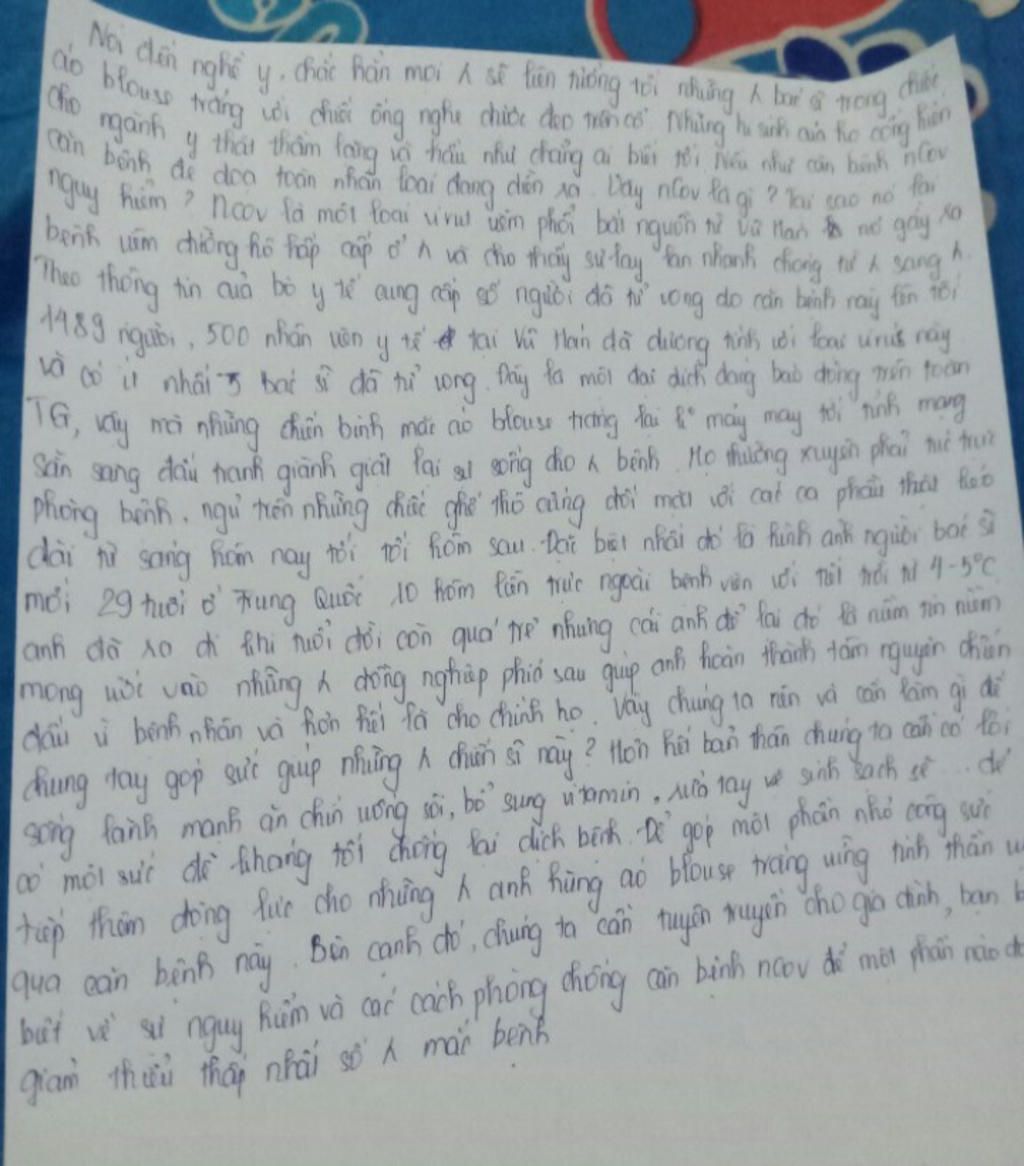 Nói đến nghề y, chắc hẳn mọi λ sẽ liên tưởng tới những λ bác sĩ trong chiếc
áo blouse trắng với chiếc ống nghe được đeo trên cổ. Những hi sinh của họ cống hiến
cho ngành y thật thầm lặng và hầu như chẳng ai biết tới. Nếu như căn bệnh nCov
căn bệnh đe doạ toàn nhân loại đang diễn ra. Vậy nCov là gì? Tại sao nó lại
nguy hiểm? Ncov là một loại virut viêm phổi bắt nguồn từ Vũ Hán nó gây ra
bệnh viêm đường hô hấp cấp ở λ và cho thấy sự lây lan nhanh chóng từ λ sang λ.
Theo thông tin của bộ y tế cung cấp số người đã tử vong do căn bệnh này lên tới
1489 người, 500 nhân viên y tế tại Vũ Hán đã dương tính với loại virus này
và có ít nhất 5 bác sĩ đã tử vong. Đây là một đại dịch đang báo động trên toàn
TG, vậy mà những chiến binh mặc áo blouse trắng lại k° mảy may tới tính mạng
sẵn sàng đấu tranh giành giật lại sự sống cho λ bệnh. Họ thường xuyên phải túc trực
phòng bệnh, ngủ trên những chiếc ghế thô cứng đối mặt với các ca phẫu thuật kéo
dài từ sáng hôm nay tới tối hôm sau. Đặc biệt nhất đó là hình ảnh người bác sĩ
mới 29 tuổi ở Trung Quốc 10 hôm liền trực ngoài bệnh viện với tiết trời từ 4-5°C
anh đã ra đi khi tuổi đời còn quá trẻ nhưng cái anh để lại đó là niềm tin niềm
mong ước vào những λ đồng nghiệp phía sau giúp anh hoàn thành tâm nguyện chiến
đấu vì bệnh nhân và hơn hết là cho chính họ. Vậy chúng ta nên và cần làm gì để
chung tay góp sức giúp những λ chiến sĩ này? Hơn hết bản thân chúng ta cần có lối
sống lành mạnh ăn chín uống sôi, bổ sung vitamin, rửa tay vệ sinh sạch sẽ... để
có một sức đề kháng tốt chống lại dịch bệnh. Để góp một phần nhỏ công sức
tiếp thêm động lực cho những λ anh hùng áo blouse trắng vững tinh thần
qua căn bệnh này. Bên cạnh đó, chúng ta cần tuyên truyền cho gia đình, bạn
biết về sự nguy hiểm và các cách phòng chống căn bệnh ncov để một phần nào
giảm thiểu thấp nhất số λ mắc bệnh